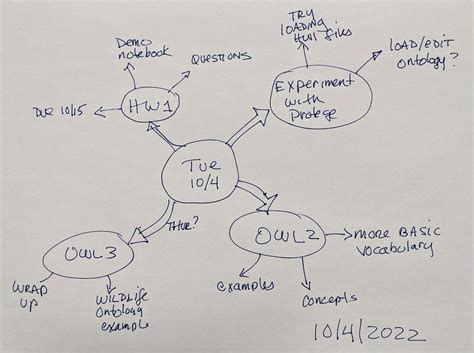 TRY
LOADING
HW1 files
Demo
notebook
QUESTIONS
LOAD/EDIT
ontology?
DUE 10/15
HW1
Experiment
with
Protege
Tue
10/4
THUR?
OWL3
OWL2
MORE BASIC
vocabulary
WRAP
UP
WILDLife
Ontology
example
examples
Concepts
10/4/2022